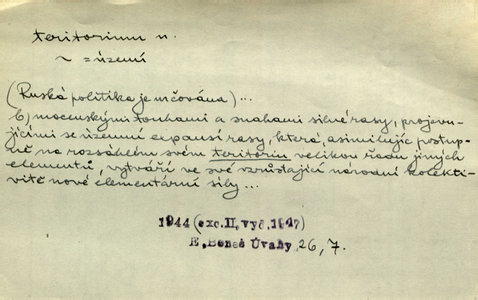 teritorium n.
~ = území
(Ruská politika je určována)...
b) mocenskými touhami a snahami silné rasy, projevu-
jícími se územní expansí rasy, která, asimilujíc postup-
ně na rozsáhlém svém teritoriu velikou řadu jiných
elementů, vytváří ve své vzrůstající národní kolekti-
vitě nové elementární síly...
1944 (exc. II, vyd. 1947)
E. Beneš Úvahy 26, 7.